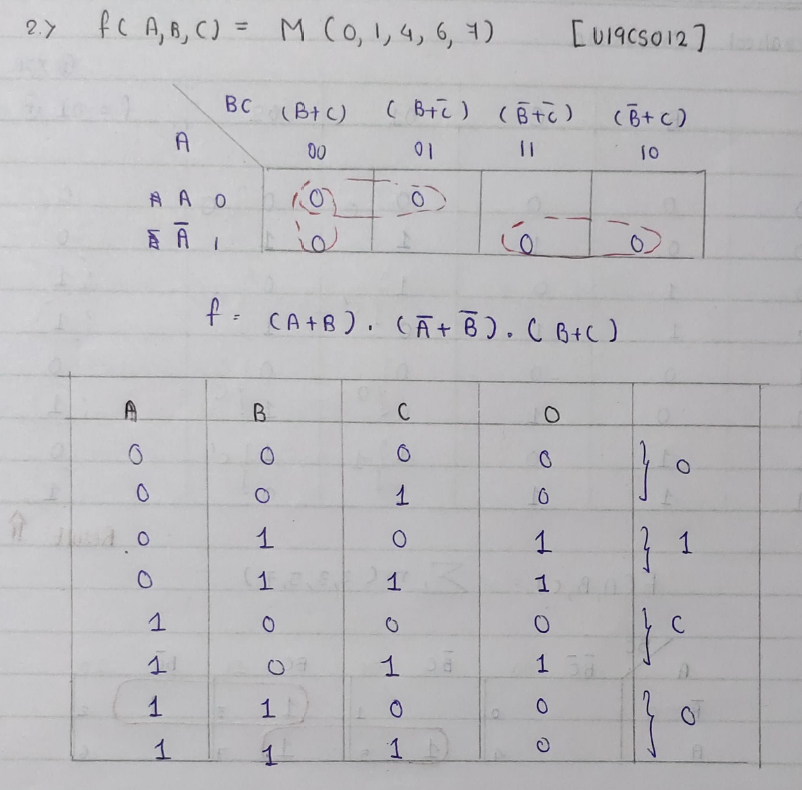 2.> f( A,B,C) = M (0,1,4,6,7) [U19CS012]
BC (B+C) (B+C̅) (B̅+C̅) (B̅+C)
A 00 01 11 10
A A 0 0 0
A̅ 1 0 0 0
f = (A+B) . (A̅+B̅). ( B+C)
A B C O
0 0 0 0 } 0
0 0 1 0
0 1 0 1 } 1
0 1 1 1
1 0 0 0 } C
1 0 1 1
1 1 0 0 } 0
1 1 1 0